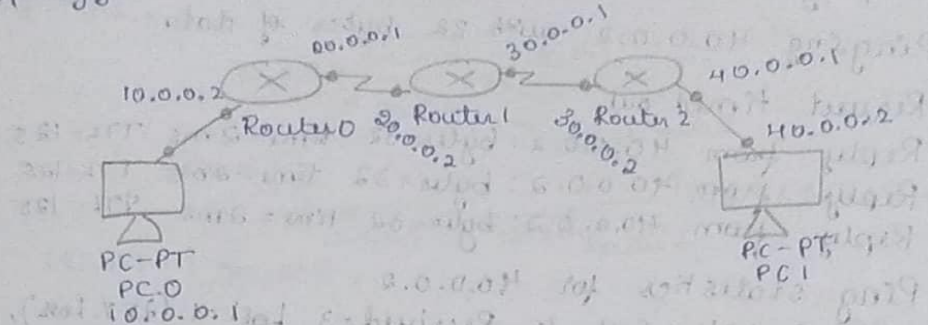 00.0.0.1
30.0.0.1
40.0.0.1
10.0.0.2
Router0
20.0.0.2
Router 1
30.0.0.2
Router 2
40.0.0.2
PC-PT
PC0
10.0.0.1
PC-PT
PC1